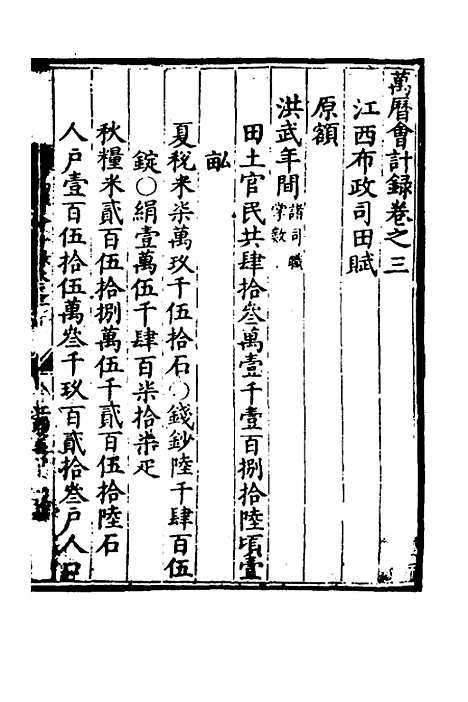 萬曆會計録卷之三
江西布政司田賦
原額
洪武年間諸司職掌数
田土官民共肆拾叁萬壹千壹百捌拾陸頃壹
畝
夏稅米柒萬玖千伍拾石○錢鈔陸千肆百伍
錠○絹壹萬伍千肆百柒拾柒疋
秋糧米貳百伍拾捌萬伍千貳百伍拾陸石
人戶壹百伍拾伍萬叁千玖百貳拾叁戶人口